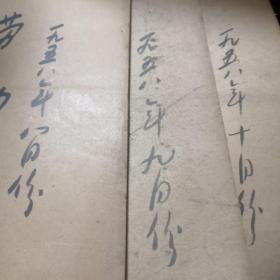 劳
一九五八年八月份
一九五八年九月份
一九五八年十月份